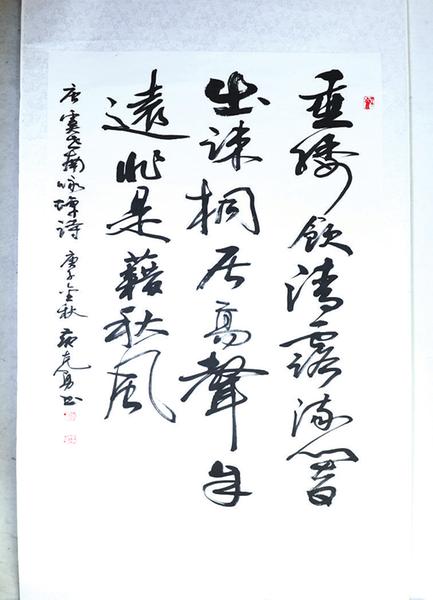 垂緌飲清露流響
出疎桐居高聲自
遠非是藉秋風
唐虞世南咏蟬詩 庚子金秋 克勇书